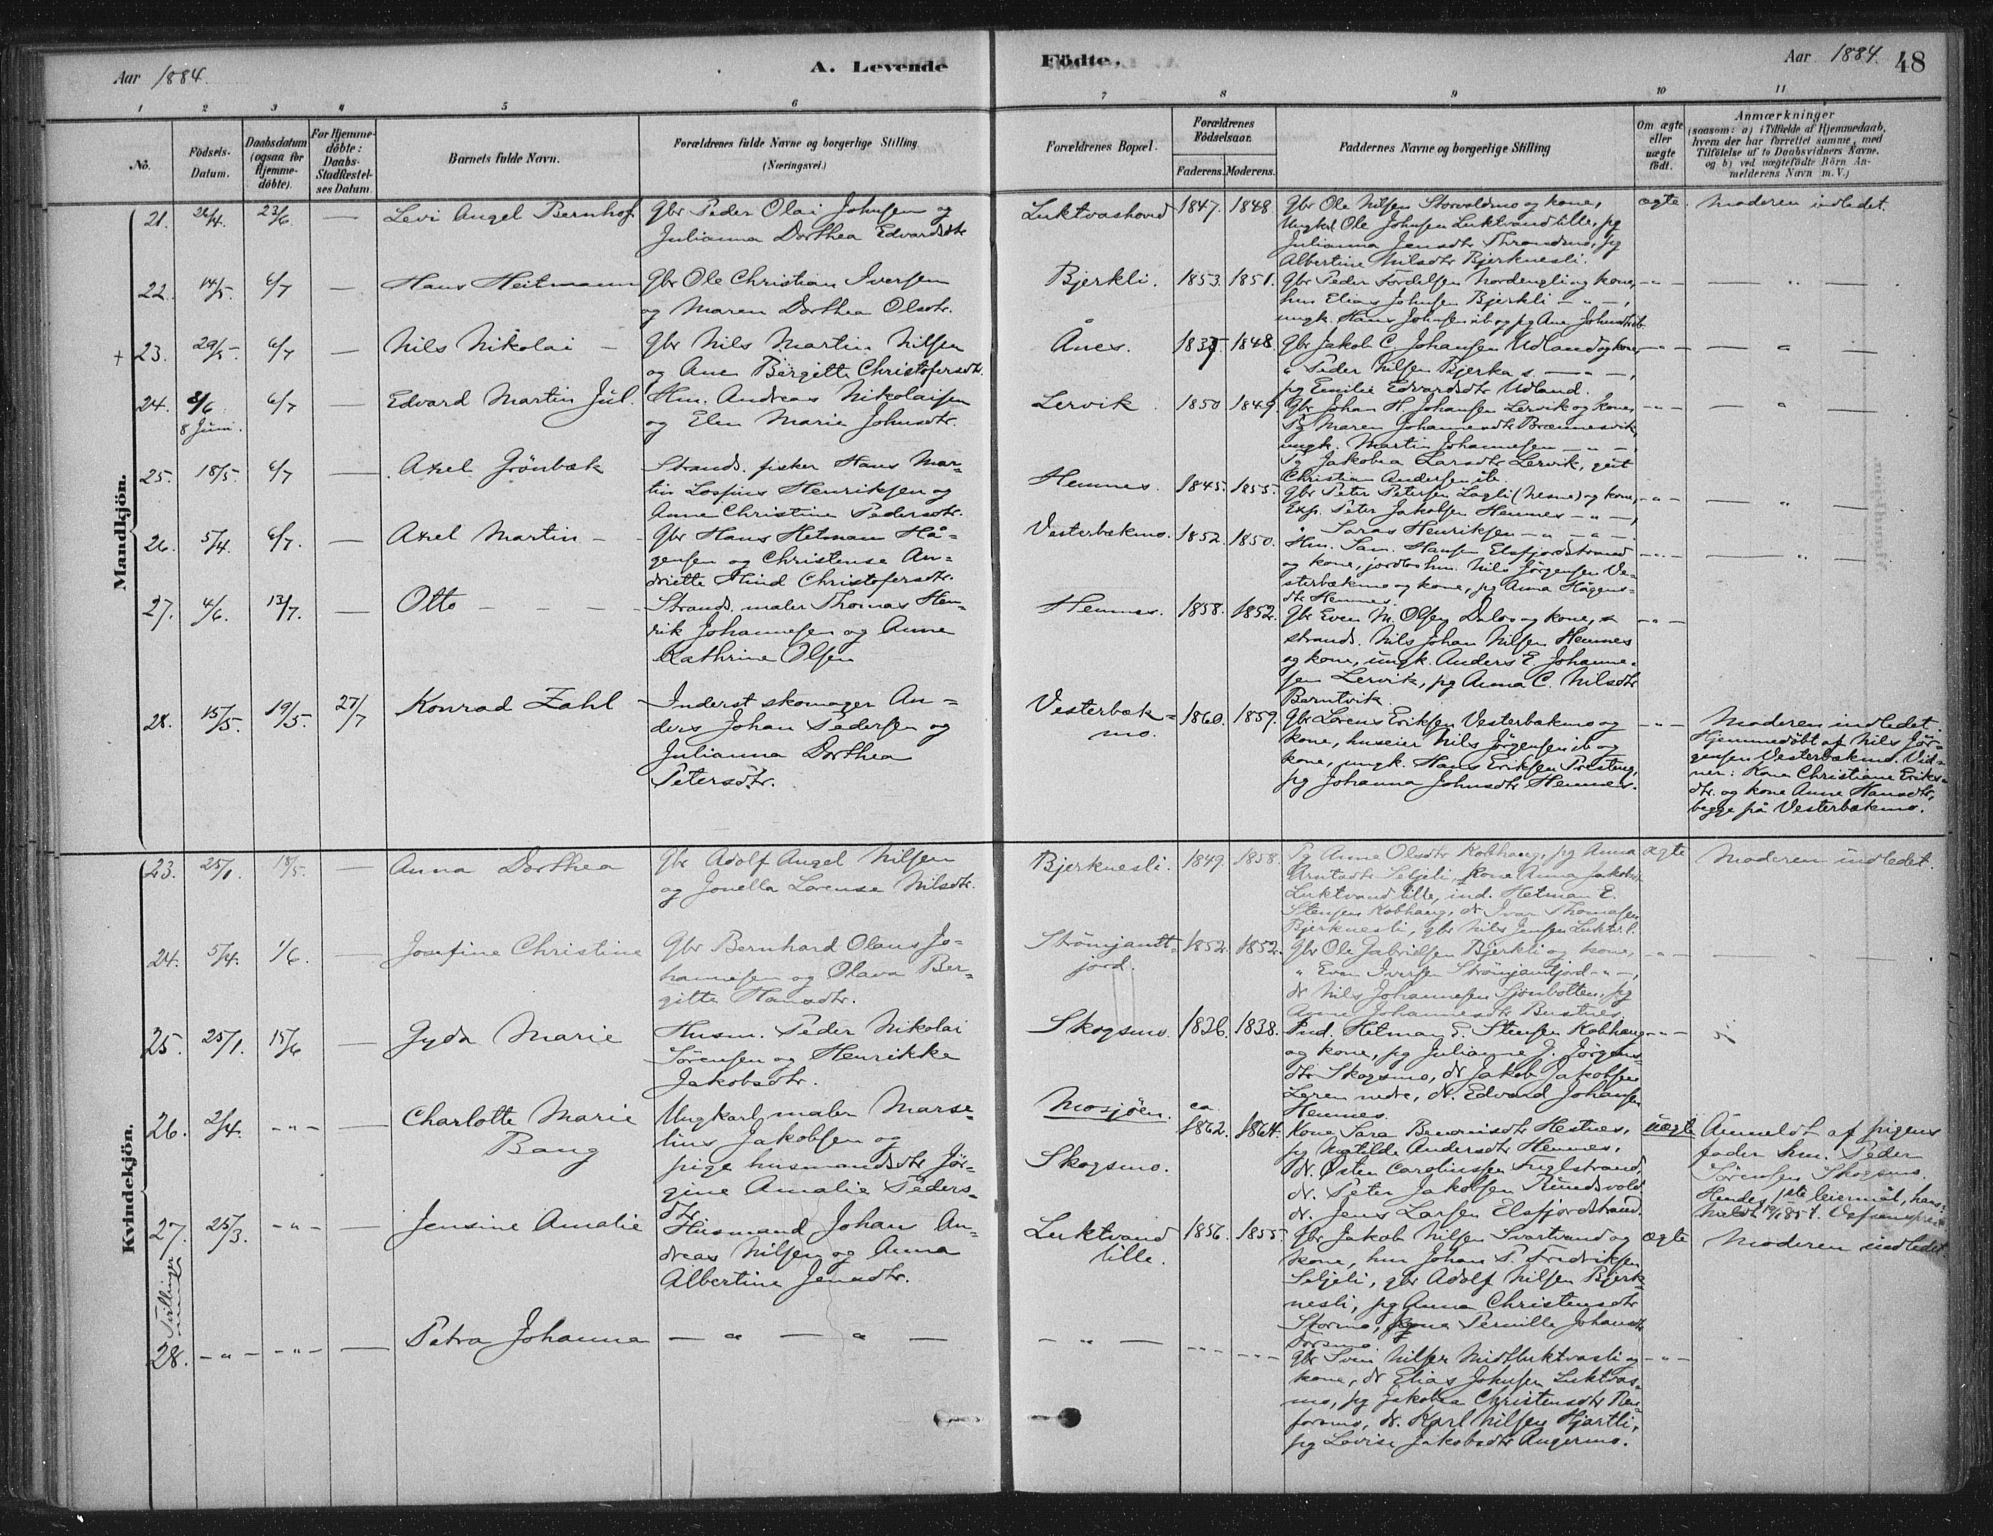 Aar 1884.
A. Levende
Födte.
Aar 1884.
48
1 2 3 4 5 6 7 8 9 10 11
No.
Födsels-Datum.
Daabsdatum (ogsaa for Hjemme-döbte).
For Hjemme-döbte: Daabs-Stadfæstel-ses Datum.
Barnets fulde Navn.
Forældrenes fulde Navne og borgerlige Stilling (Næringsvei.)
Forældrenes Bopæl.
Forældrenes Födselsaar.
Faderens. Moderens.
Faddernes Navne og borgerlige Stilling
Om ægte eller uægte födt.
Anmærkninger
(saasom: a) i Tilfælde af Hjemmedaab,
hvem der har forrettet samme, med
Tilföielse af to Daabsvidners Navne.
og b) ved uægtefödte Börn An-
melderens Navn m. V.)
Mandkjön.
21. 26/4. 23/6 — Levi Angel Bernhof.
Gbr Peder Olai Johnsen og
Julianna Dorthea Edvardsdtr
Luktvashoved 1847. 1848.
Gbr Ole Nilsen Storvoldmo og kone,
Ungkl Ole Johnsen Luktvandlille, pg
Julianna Jensdtr Thrandmo, pg
Albertine Nilsdtr Bjerknesli.
ægte. Moderen indledet.
22. 14/5. 6/7 — Hans Heitmann
Gbr Ole Christian Iversen
og Maren Dorthea Olsdtr.
Bjerkli. 1853. 1851.
Gbr Peder Fordelsen Nordengli og kone,
hm Elias Johnsen Bjerkli — " —,
ungk. Hans Johnsen ib og pg Ane Johnsdtr ib.
— " — — " —
+ 23. 29/5 6/7 — Nils Nikolai —
Gbr Nils Martin Nilsen
og Ane Bergitte Christofersdtr.
Ånes. 1837. 1848.
Gbr Jakob C. Johansen Udland og kone,
" Peder Nilsen Bjerka s. — " —,
pg Emilie Edvardsdtr Udland.
— " — — " —
24. 8/6 8 Juni. 6/7 — Edvard Martin Jul.
Hm. Andreas Nikolaisen
og Elen Marie Johnsdtr.
Lervik. 1850 1849.
Gbr Johan H. Johansen Lervik og kone,
Pg Maren Johannesdtr Brænnesvik,
ungk. Martin Johannesen — " —,
Pg Jakobea Larsdtr Lervik, gut
Christian Andersen ib.
— " — — " —
25. 18/5. 6/7 — Axel Grönbæk
Strands. fisker Hans Mar-
tin Losius Henriksen og
Anne Christine Pedersdtr.
Hemnes. 1845. 1855.
Gbr Peter Petersen Lagli (Nesne) og kone,
Exp. Peter Jakobsen Hemnes — " —,
" Saras Henriksen — " —
— " — — " —
26. 5/4. 6/7. — Axel Martin — —
Gbr Hans Hetman Hå-
gensen og Christense An-
driette Hind Christofersdtr.
Vesterbækmo. 1852. 1850.
Hm. Sam. Hansen Elsfjordstrand
og kone, jordløs hm. Nils Jörgensen Ve-
sterbækmo og kone, pg Anna Hågens-
dtr Hemnes.
— " — — " —
27. 4/6. 13/7. — Otto — — —
Strands. maler Thomas Hen-
rik Johannesen og Anne
Kathrine Olsen
Hemnes. 1858. 1852.
Gbr Even M. Olsen Dalos og kone,
strands. Nils Johan Nilsen Hemnes
og kone, ungk. Anders E. Johanne-
sen Lervik, pg Anna C. Nilsdtr
Barntvik.
— " —
28. 15/5. 19/5. 27/7 Konrad Zahl
Inderst skomager An-
ders Johan Pedersen og
Julianna Dorthea
Petersdtr.
Vesterbæk-
mo. 1860. 1859.
Gbr Lorens Eriksen Vesterbækmo og
kone, huseier Nils Jörgensen ib og
kone, ungk. Hans Eriksen Presteng,
pg Johanna Johnsdtr Hemnes.
— " —
Moderen indledet.
Hjemmedöbt af Nils Jör-
gensen Vesterbækmo. Vid-
ner: Kone Christiane Eriks-
dtr. og kone Anne Hansdtr,
begge på Vesterbækmo.
Kvindekjön.
23. 25/1. 18/5. — Anna Dorthea
Gbr Adolf Angel Nilsen
og Jonella Lorense Nilsdtr.
Bjerknesli. 1849. 1858.
Pg Anne Olsdtr Kobhaug, pg Anna
Arntsdtr Seljeli, kone Anna Jakobsdtr
Luktvand lille, ind. Hetman E.
Stensen Kobhaug, dr. Ivar Thomasen
Bjerknesli, gbr Nils Jensen Luktv. l.
ægte Moderen indledet.
24. 5/4. 1/6. — Josefine Christine
Gbr Bernhard Olaus Jo-
hannesen og Olava Ber-
gitte Hansdtr.
Strömjandt-
jord. 1852. 1852.
Gbr Ole Gabrielsen Bjerkli og kone,
" Even Iversen Strömjamtjord — " —,
dr Nils Johannesen Sjonbotten, pg
Anne Johannesdtr Bustnes.
— " — — " —
25. 25/1. 15/6 — Gyda Marie
Husm. Peder Nikolai
Sörensen og Henrikke
Jakobsdtr.
Skogsmo. 1836. 1838.
Ind. Hetman E. Stensen Kobhaug
og kone, pg Julianne J. Jörgens-
dtr Skogsmo, dr Jakob Jakobsen
Leren nedre, dr. Edvard Johansen
Hemnes.
— " —
26. 2/4. — " — — Charlotte Marie
Bang
Ungkarl, maler Marse-
lius Jakobsen og
pige husmandsdtr Jör-
gine Amalie Peders-
dtr.
Mosjöen.
Skogsmo.
ca 1862. 1864.
Kone Sara Benonisdtr Hestnes,
pg Matilde Andersdtr Hemnes,
dr. Östen Carolinssen Fuglstrand,
dr. Peter Jakobsen Rundsvold
dr. Jens Larsen Elsfjordstrand.
uægte
Anmeldt af pigens
fader hm. Peder
Sörensen Skogsmo.
Hendes 1ste leiermål, hans
27. 25/3. — " — — Jensine Amalie
Husmand Johan An-
dreas Nilsen og Anna
Albertine Jensdtr.
Luktvand
lille. 1856. 1855.
Gbr Jakob Nilsen Svartvand og
kone, hm Johan P. Fredriksen
Seljeli, gbr Adolf Nilsen Bjerk-
nesli, pg Anna Christensdtr
Stormo, kone Pernille Johansdtr
Dorsmo.
ægte Moderen indledet.
Tvillinger
28. — " — — " — — Petra Johanna
— " — " —
— " —
Gbr Sven Nilsen Midtluktvasli og
kone, dr Elias Johnsen Luktvas-
mo, pg Jakobea Christensdtr Ren-
forsmo, dr. Karl Nilsen Hjartli,
pg Lovise Jakobsdtr Angermo.
— " —